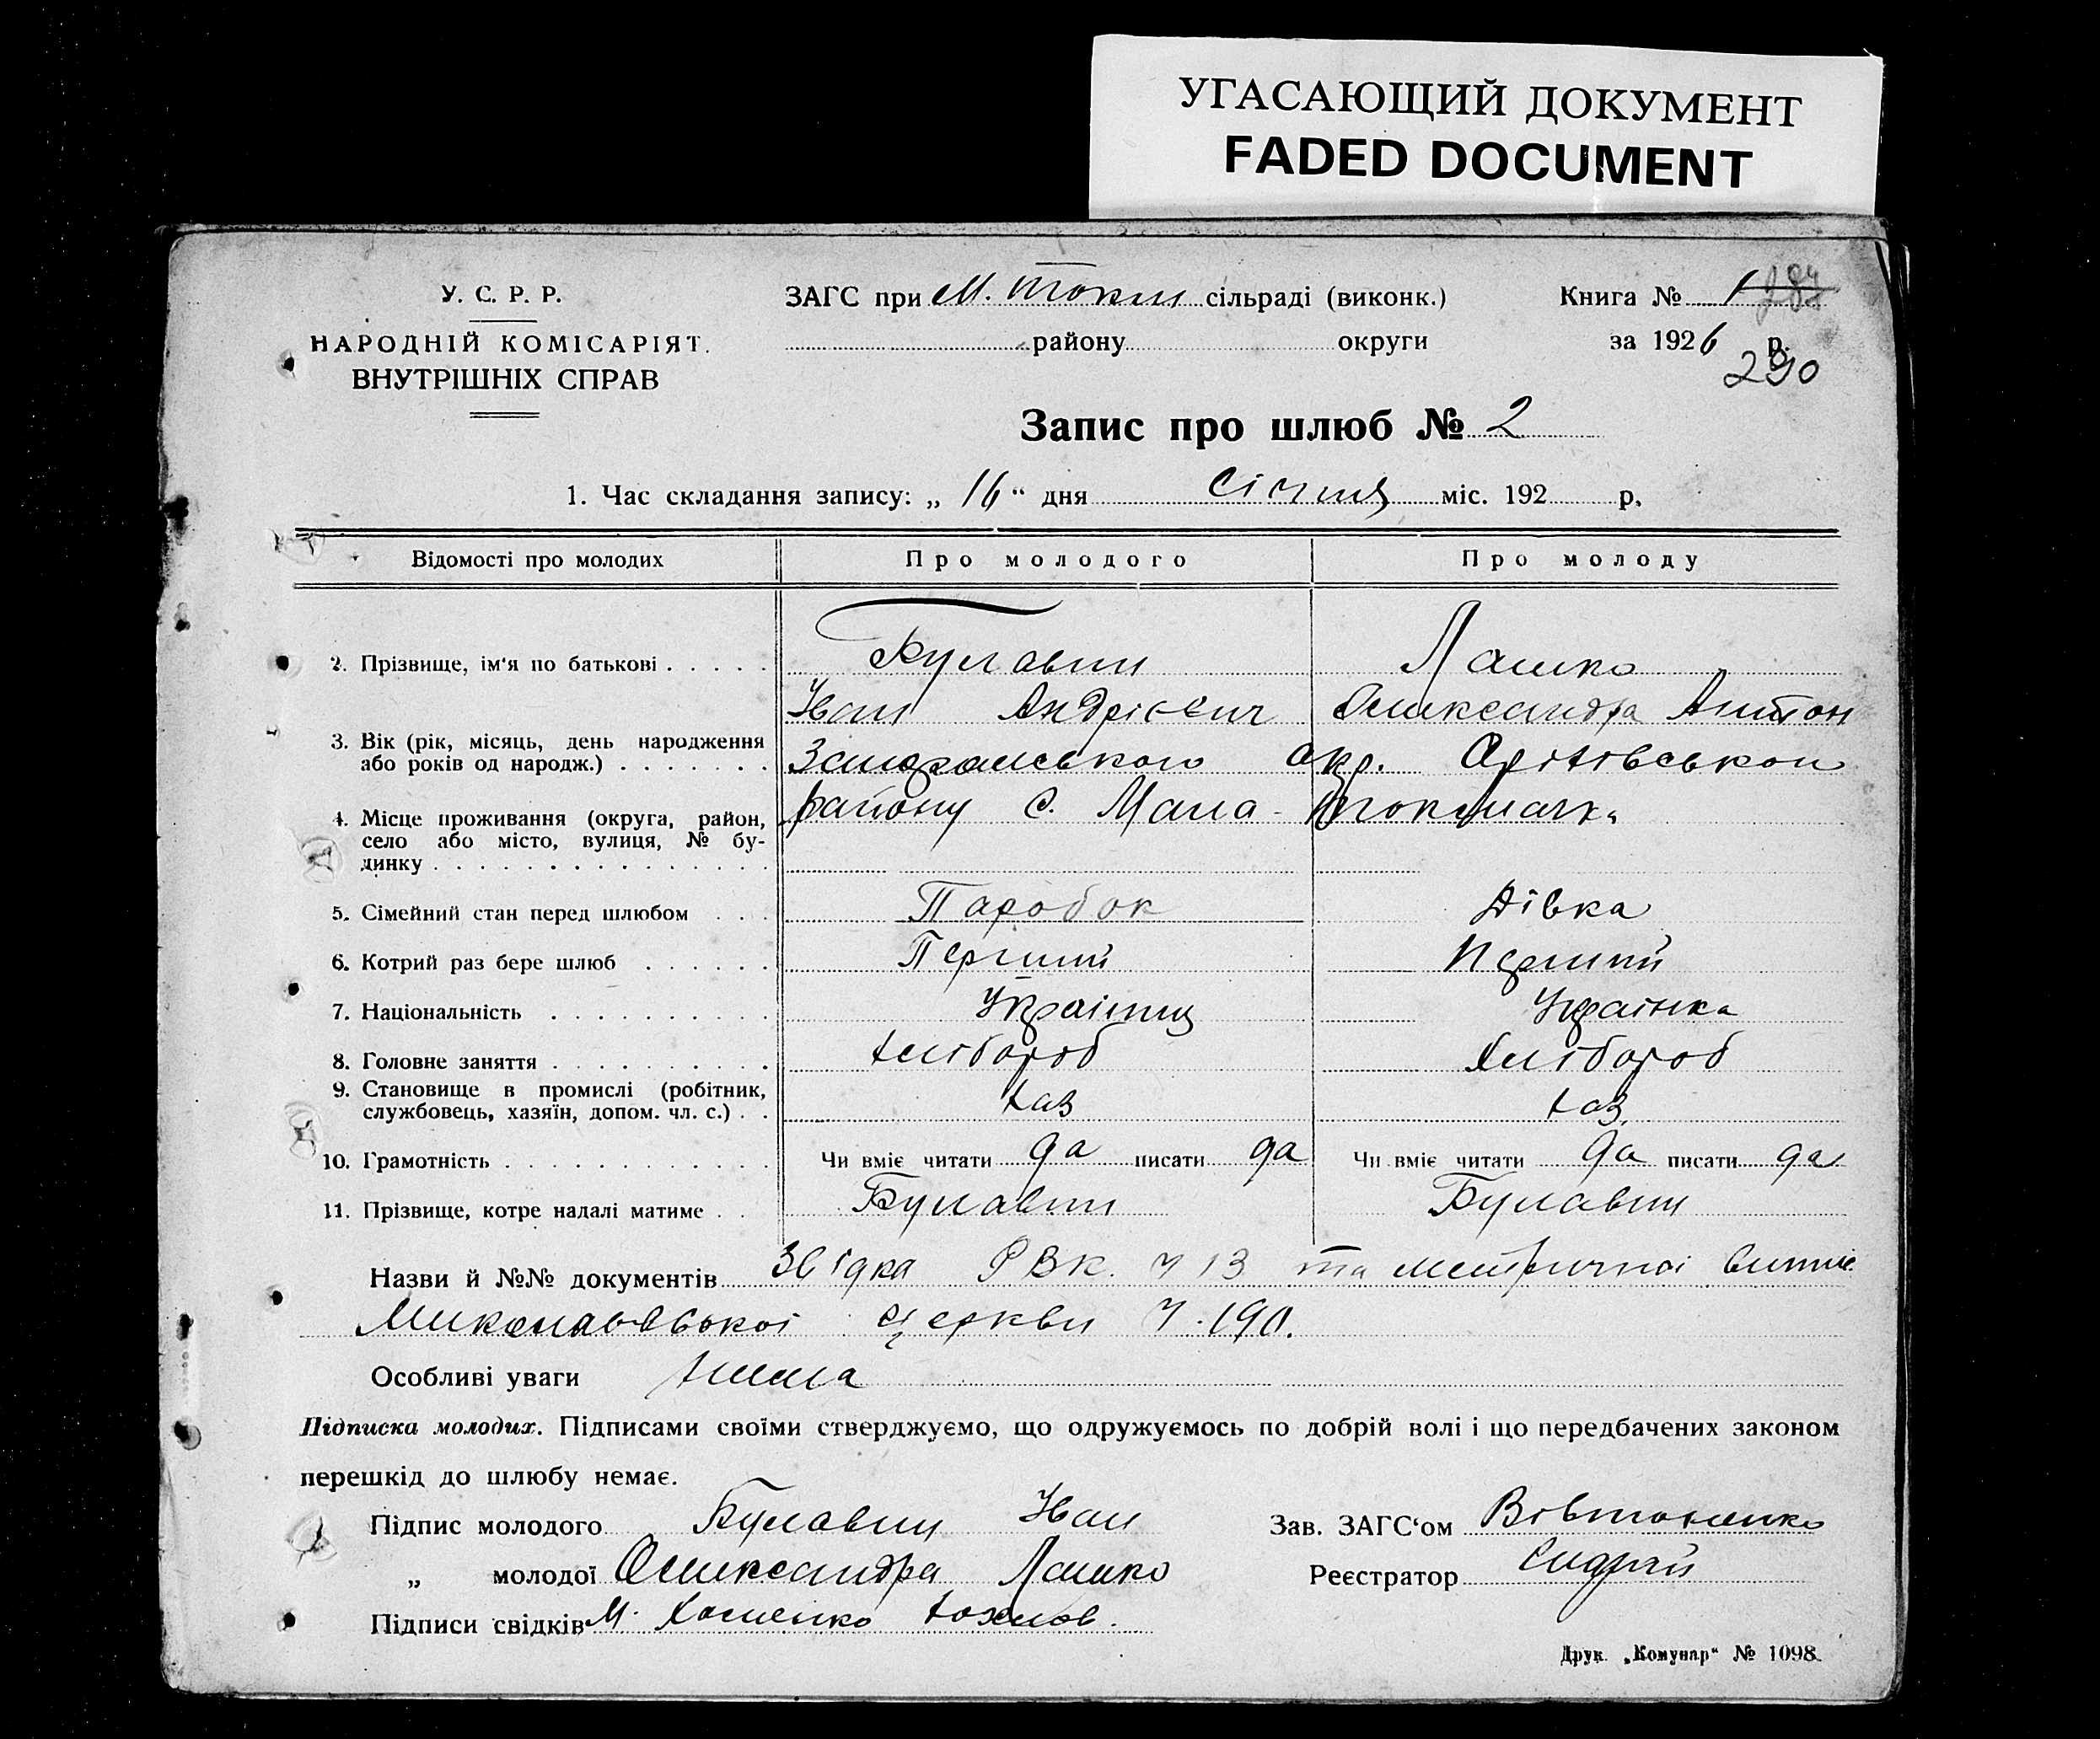 УГАСАЮЩИЙ ДОКУМЕНТ
FADED DOCUMENT
У. С. Р. Р.
НАРОДНІЙ КОМІСАРІЯТ
ВНУТРІШНІХ СПРАВ
ЗАГС при М. Токм сільраді (виконк.)
району округи
Книга № 1 284
за 1926 р.
290
Запис про шлюб № 2
1. Час складання запису: „ 16 “ дня Січня міс. 192 р.
Відомості про молодих Про молодого Про молоду
2. Прізвище, ім'я по батькові Булавин Лашко
Іван Андрієвич Олександра Антон
3. Вік (рік, місяць, день народження
або років од народж.) Запоразського окр. Оріхівськой
4. Місце проживання (округа, район, району С. Мала-Токмачка
село або місто, вулиця, № бу-
динку
5. Сімейний стан перед шлюбом Паробок Дівка
6. Котрий раз бере шлюб Перший Перший
7. Національність Украінец Украінка
8. Головне заняття хлібороб Хлібороб
9. Становище в промислі (робітник,
службовець, хазяїн, допом. чл. с.) хаз хаз.
10. Грамотність Чи вміє читати да писати да Чи вміє читати да писати да
11. Прізвище, котре надалі матиме Булавин Булавин
Назви й №№ документів Звідка РВК. Ч 13 та метричноі випис
Миколаівськоі церкви Ч. 190.
Особливі уваги нема
Підписка молодих. Підписами своїми стверджуємо, що одружуємось по добрій волі і що передбачених законом
перешкід до шлюбу немає.
Підпис молодого Булавин Іван Зав. ЗАГС‘ом Вівтоненко
„ молодої Олександра Лашко Реєстратор
Підписи свідків М. Хоменко
Друк. „Комунар“ № 1098.